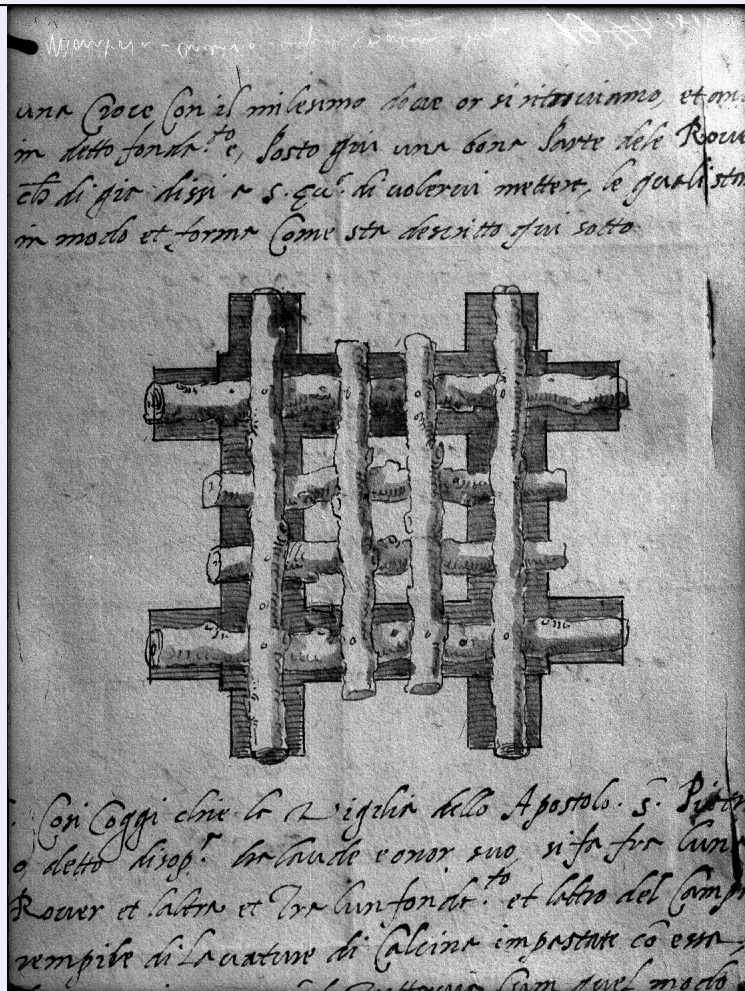 una Croce Con il milesimo doue or si ritrouiamo, et an
in detto fonda.to e, posto qui una bona parte dele Rouer
ch di gia dissi a s. di uolerui mettere, le quali stan
in modo et forma Come sta descritto qui sotto
Cosi Coggi chie la Vigilia dello Apostolo. S. Pietr
o, detto disop.r ha laude e onor suo, si fa fra luna
Rouer et laltra et Tra lun fonda.to et laltro del Camp
rempire di Lauature di Calcina impastate cō essa
quel modo